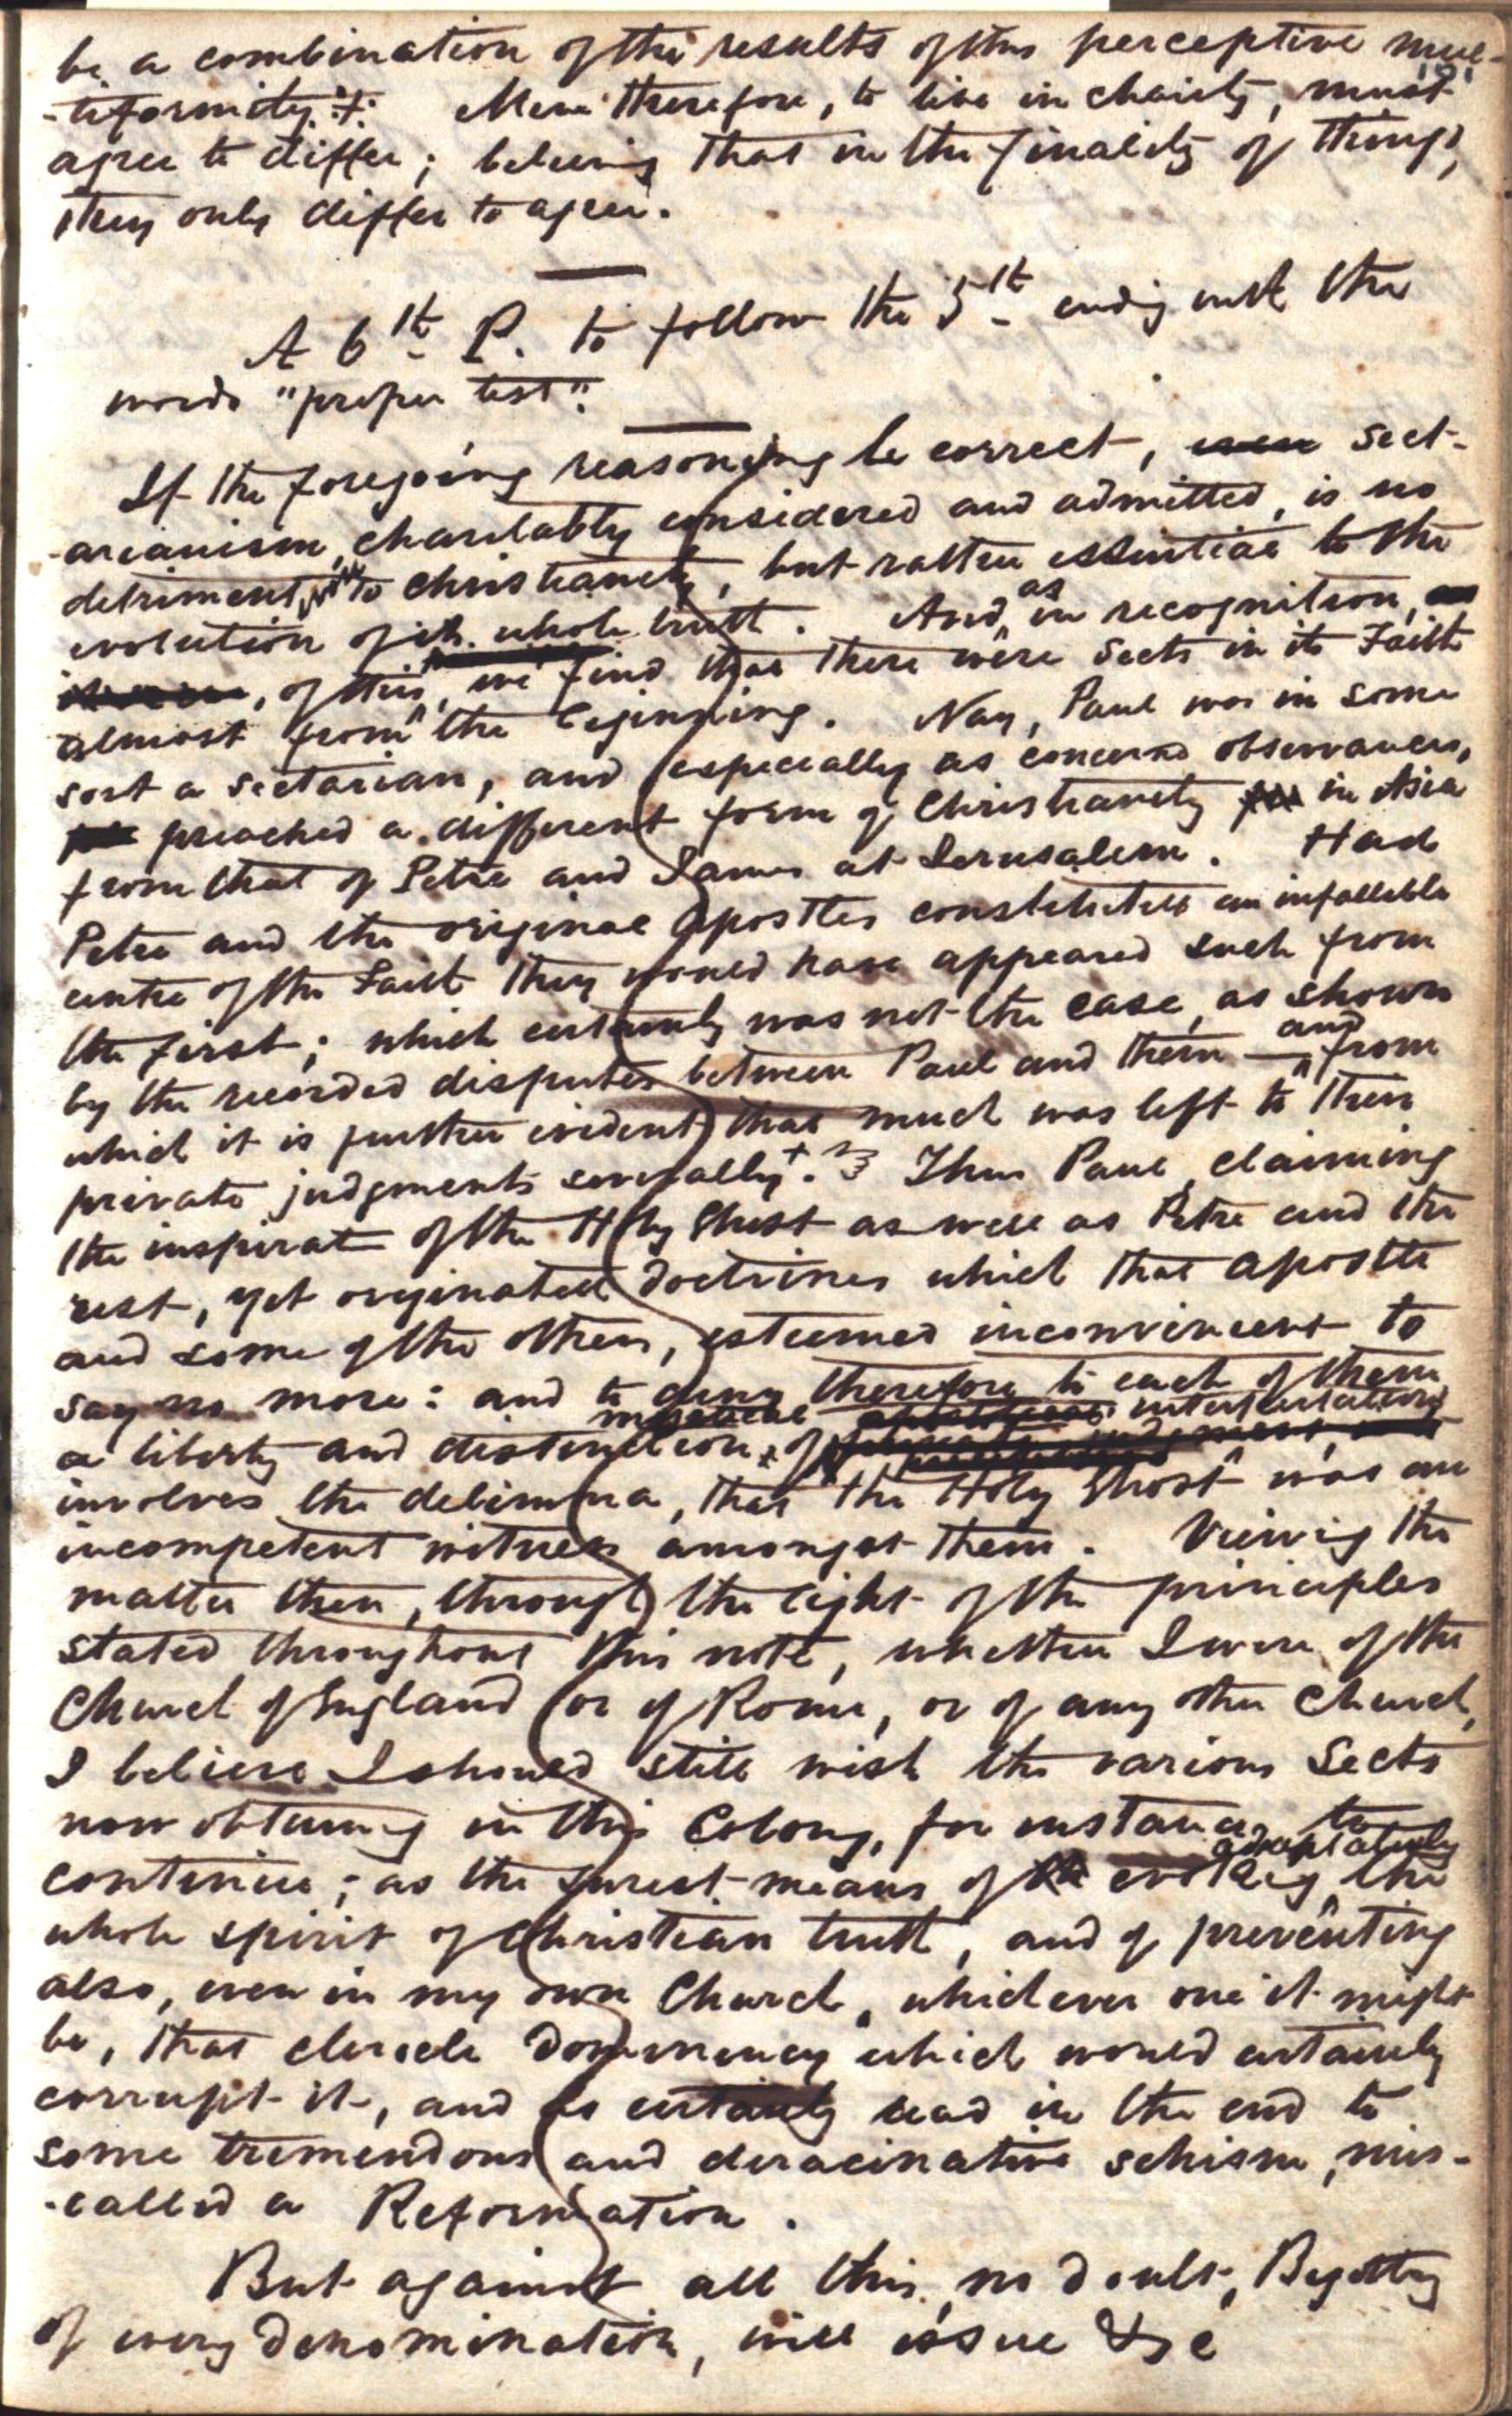 be a combination of the results of this perceptive mul-
-tiformity.‡ Men therefore, to live in charity, must
agree to differ; believing that in the finality of things,
they only differ to agree.
A 6th P. to follow the 5th endig with the
words "proper test".
If the foregoing reasoning be correct, even sect-
-arianism, charitably considered and admitted, is no
detriment to christianity, but rather essential to the
evolution of its whole truth. And, as in recognition,
, of this, we find that there were Sects in its Faith
almost from the beginning. Nay, Paul was in some
sort a sectarian, and (especially as concerned observances,
preached a different form of Christianity in Asia
from that of Peter and James at Jerusalem. Had
Peter and the original Apostles constituted an infallible
centre of the Faith they would have appeared such from
the first; which certainly was not the case, as shown
by the recorded disputes between Paul and them — and from
which it is further evident that much was left to their
private judgments severally+. Thus Paul, claiming
the inspirat of the Holy Ghost as well as Peter and the
rest, yet originated doctrines which that apostle
and some of the others, esteemed inconvenient to
say no more: and to deny therefore to each of them
a liberty and distinction of interpretation
involves the delimma, that the Holy Ghost was an
incompetent witness amongst them. Viewig the
matter then, through the light of the principles
stated throughout this note, whether I were of the
Church of England or of Rome, or of any other Church,
I believe I should still wish the various Sects
now obtaining in this Colony, for instance, to
continue; as the surest means of evolvig adaptatively the
whole spirit of Christian truth, and of preventing
also, even in my own Church, whichever one it might
be, that clericle domminency which would certainly
corrupt it, and as certainly lead in the end to
some tremendous and deracinative schism, mis-
-called a Reformation.
But against all this, no doubt, Bigottry
of every denomination, will issue &c